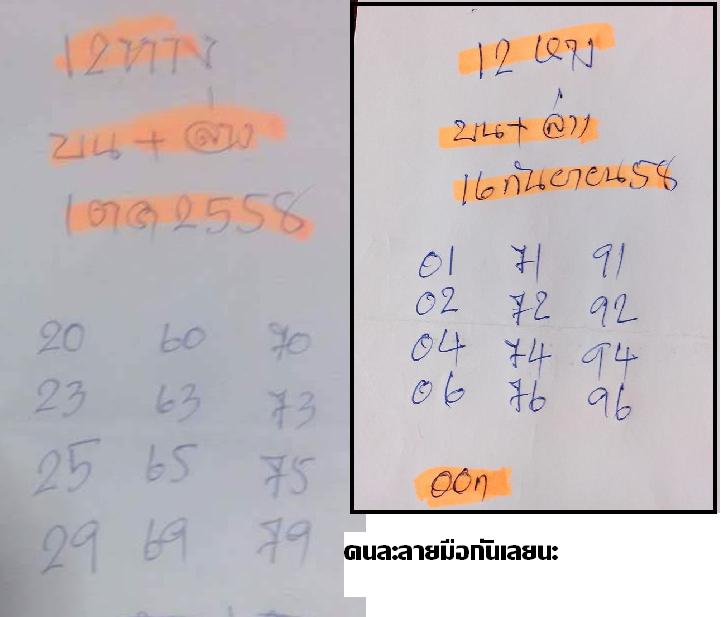 12ทาง
บน + ล่าง
1 ตค 2558
20 60 70
23 63 73
25 65 75
29 69 79
12 ทาง
บน + ล่าง
16 กันยายน 58
01 71 91
02 72 92
04 74 94
06 76 96
ออก
คนละลายมือกันเลยนะ